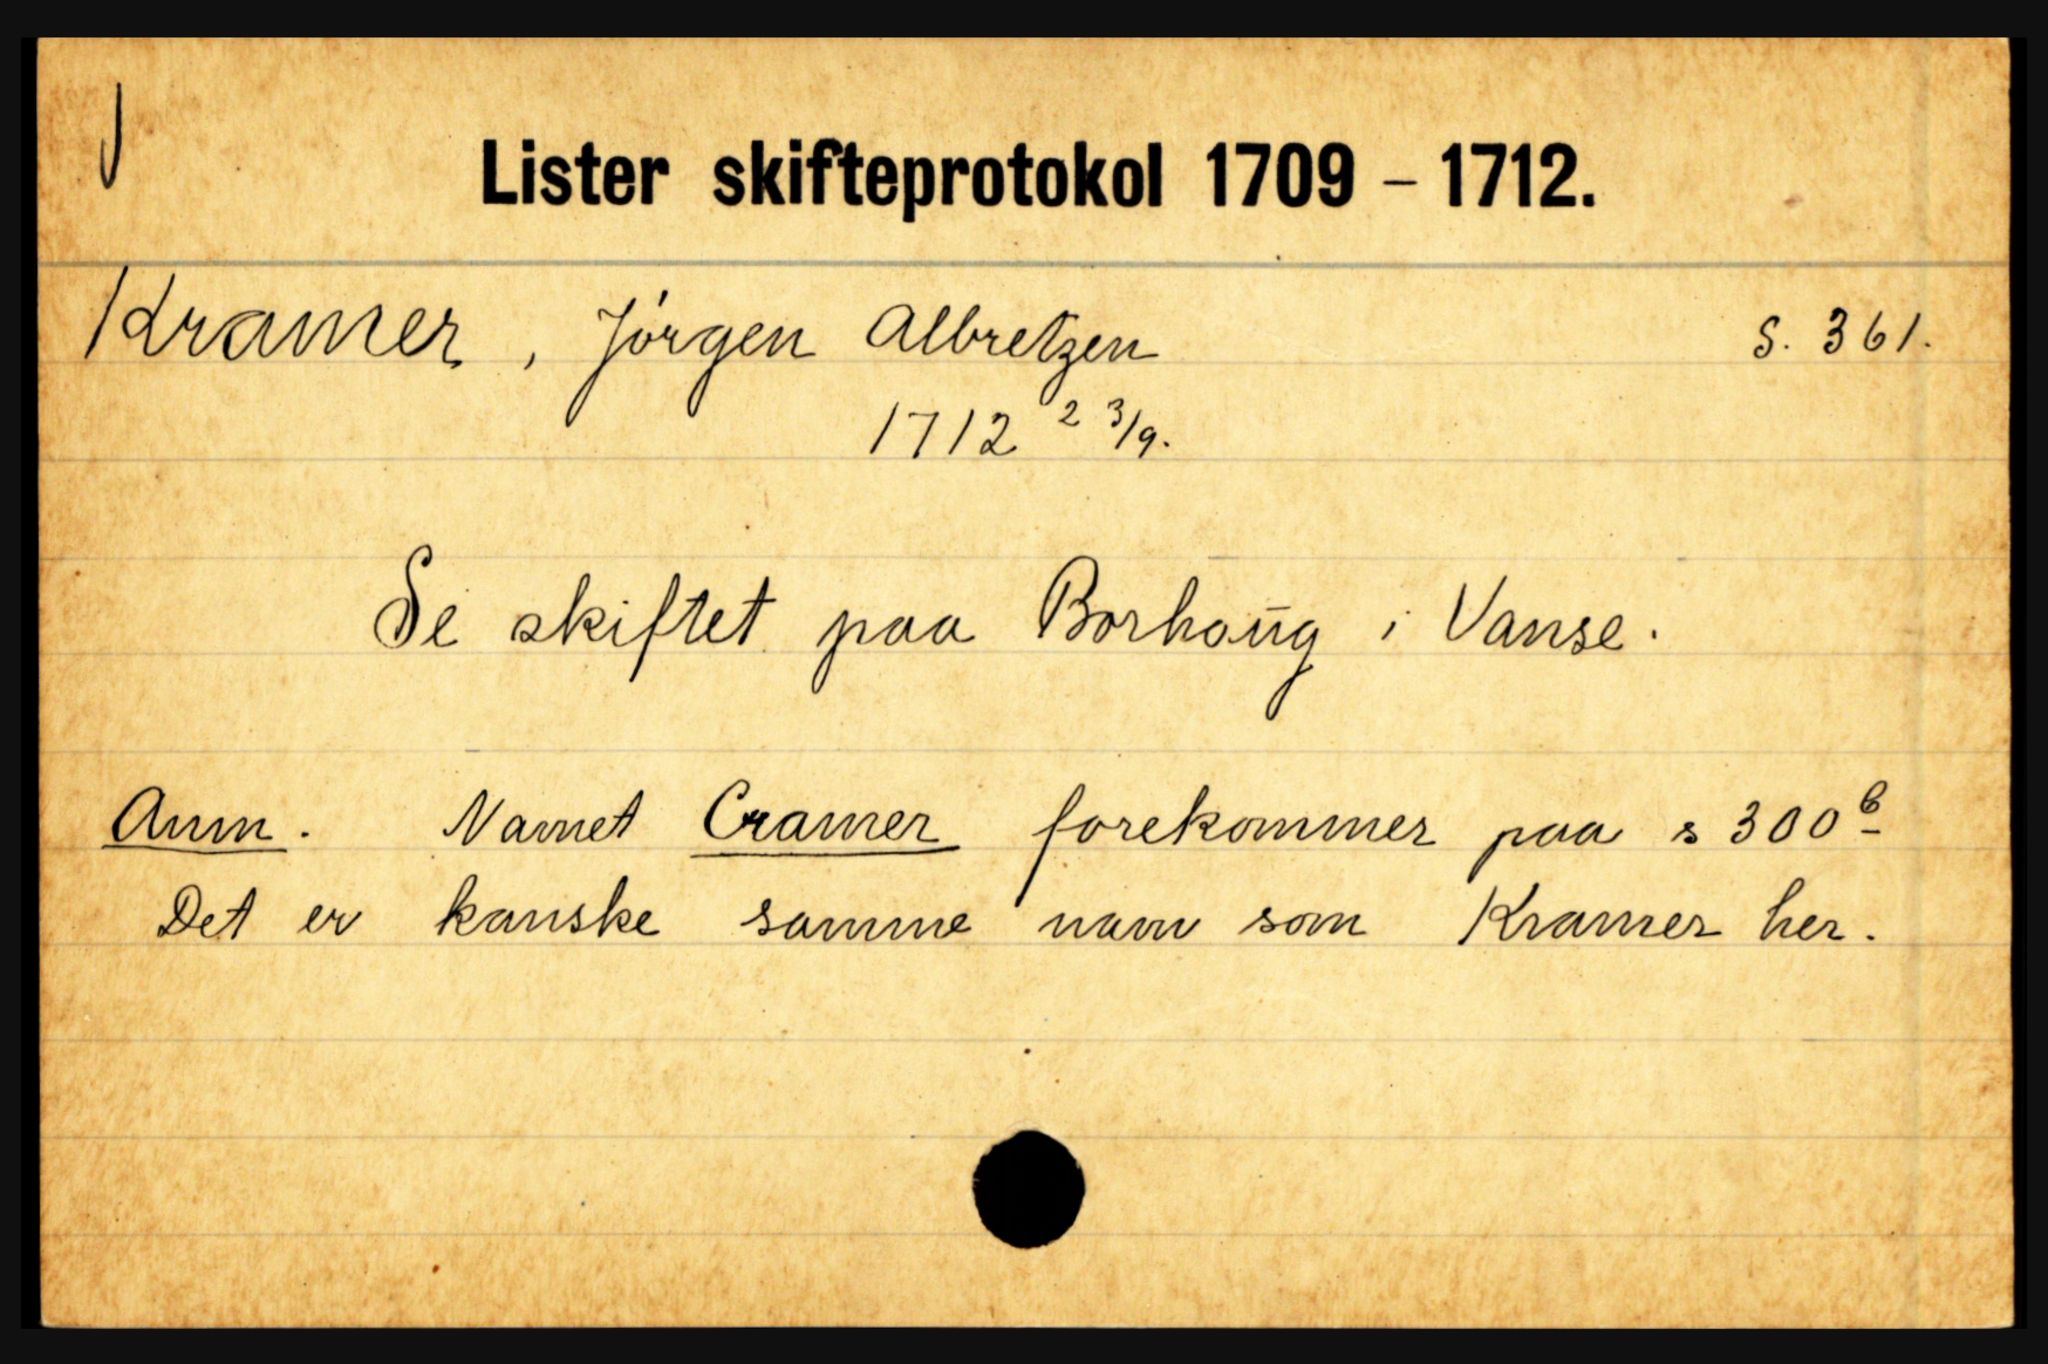 Lister skifteprotokol 1709 – 1712.
Kramer, Jörgen Albretzen S. 361.
1712 23/9.
Se skiftet paa Borhaūg i Vanse.
Anm. Navnet Cramer forekommer paa s 300b
Det er kanske samme navn som Kramer her.